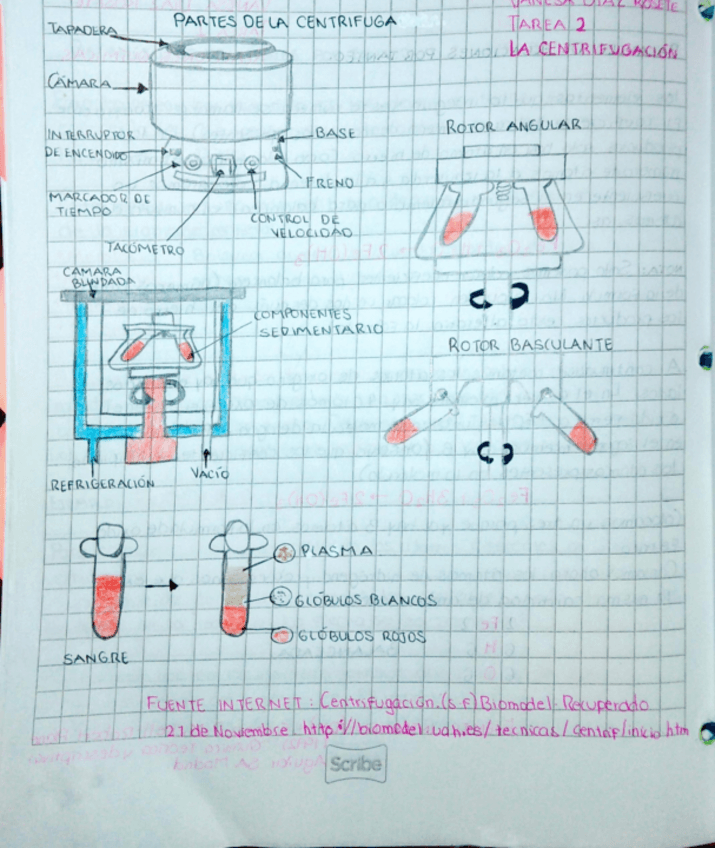 PARTES DE LA CENTRIFUGA
TAREA 2
LA CENTRIFUGACIÓN
TAPADERA
CÁMARA
INTERRUPTOR
DE ENCENDIDO
MARCADOR DE
TIEMPO
TACÓMETRO
BASE
FRENO
CONTROL DE
VELOCIDAD
ROTOR ANGULAR
CÁMARA
BLINDADA
COMPONENTES
SEDIMENTARIO
REFRIGERACIÓN
VACÍO
ROTOR BASCULANTE
PLASMA
GLÓBULOS BLANCOS
GLÓBULOS ROJOS
SANGRE
FUENTE INTERNET: Centrifugación.(s.f) Biomodel. Recuperado
21 de Noviembre. http://biomodel.uah.es/tecnicas/centrif/inicio.htm
Scribe